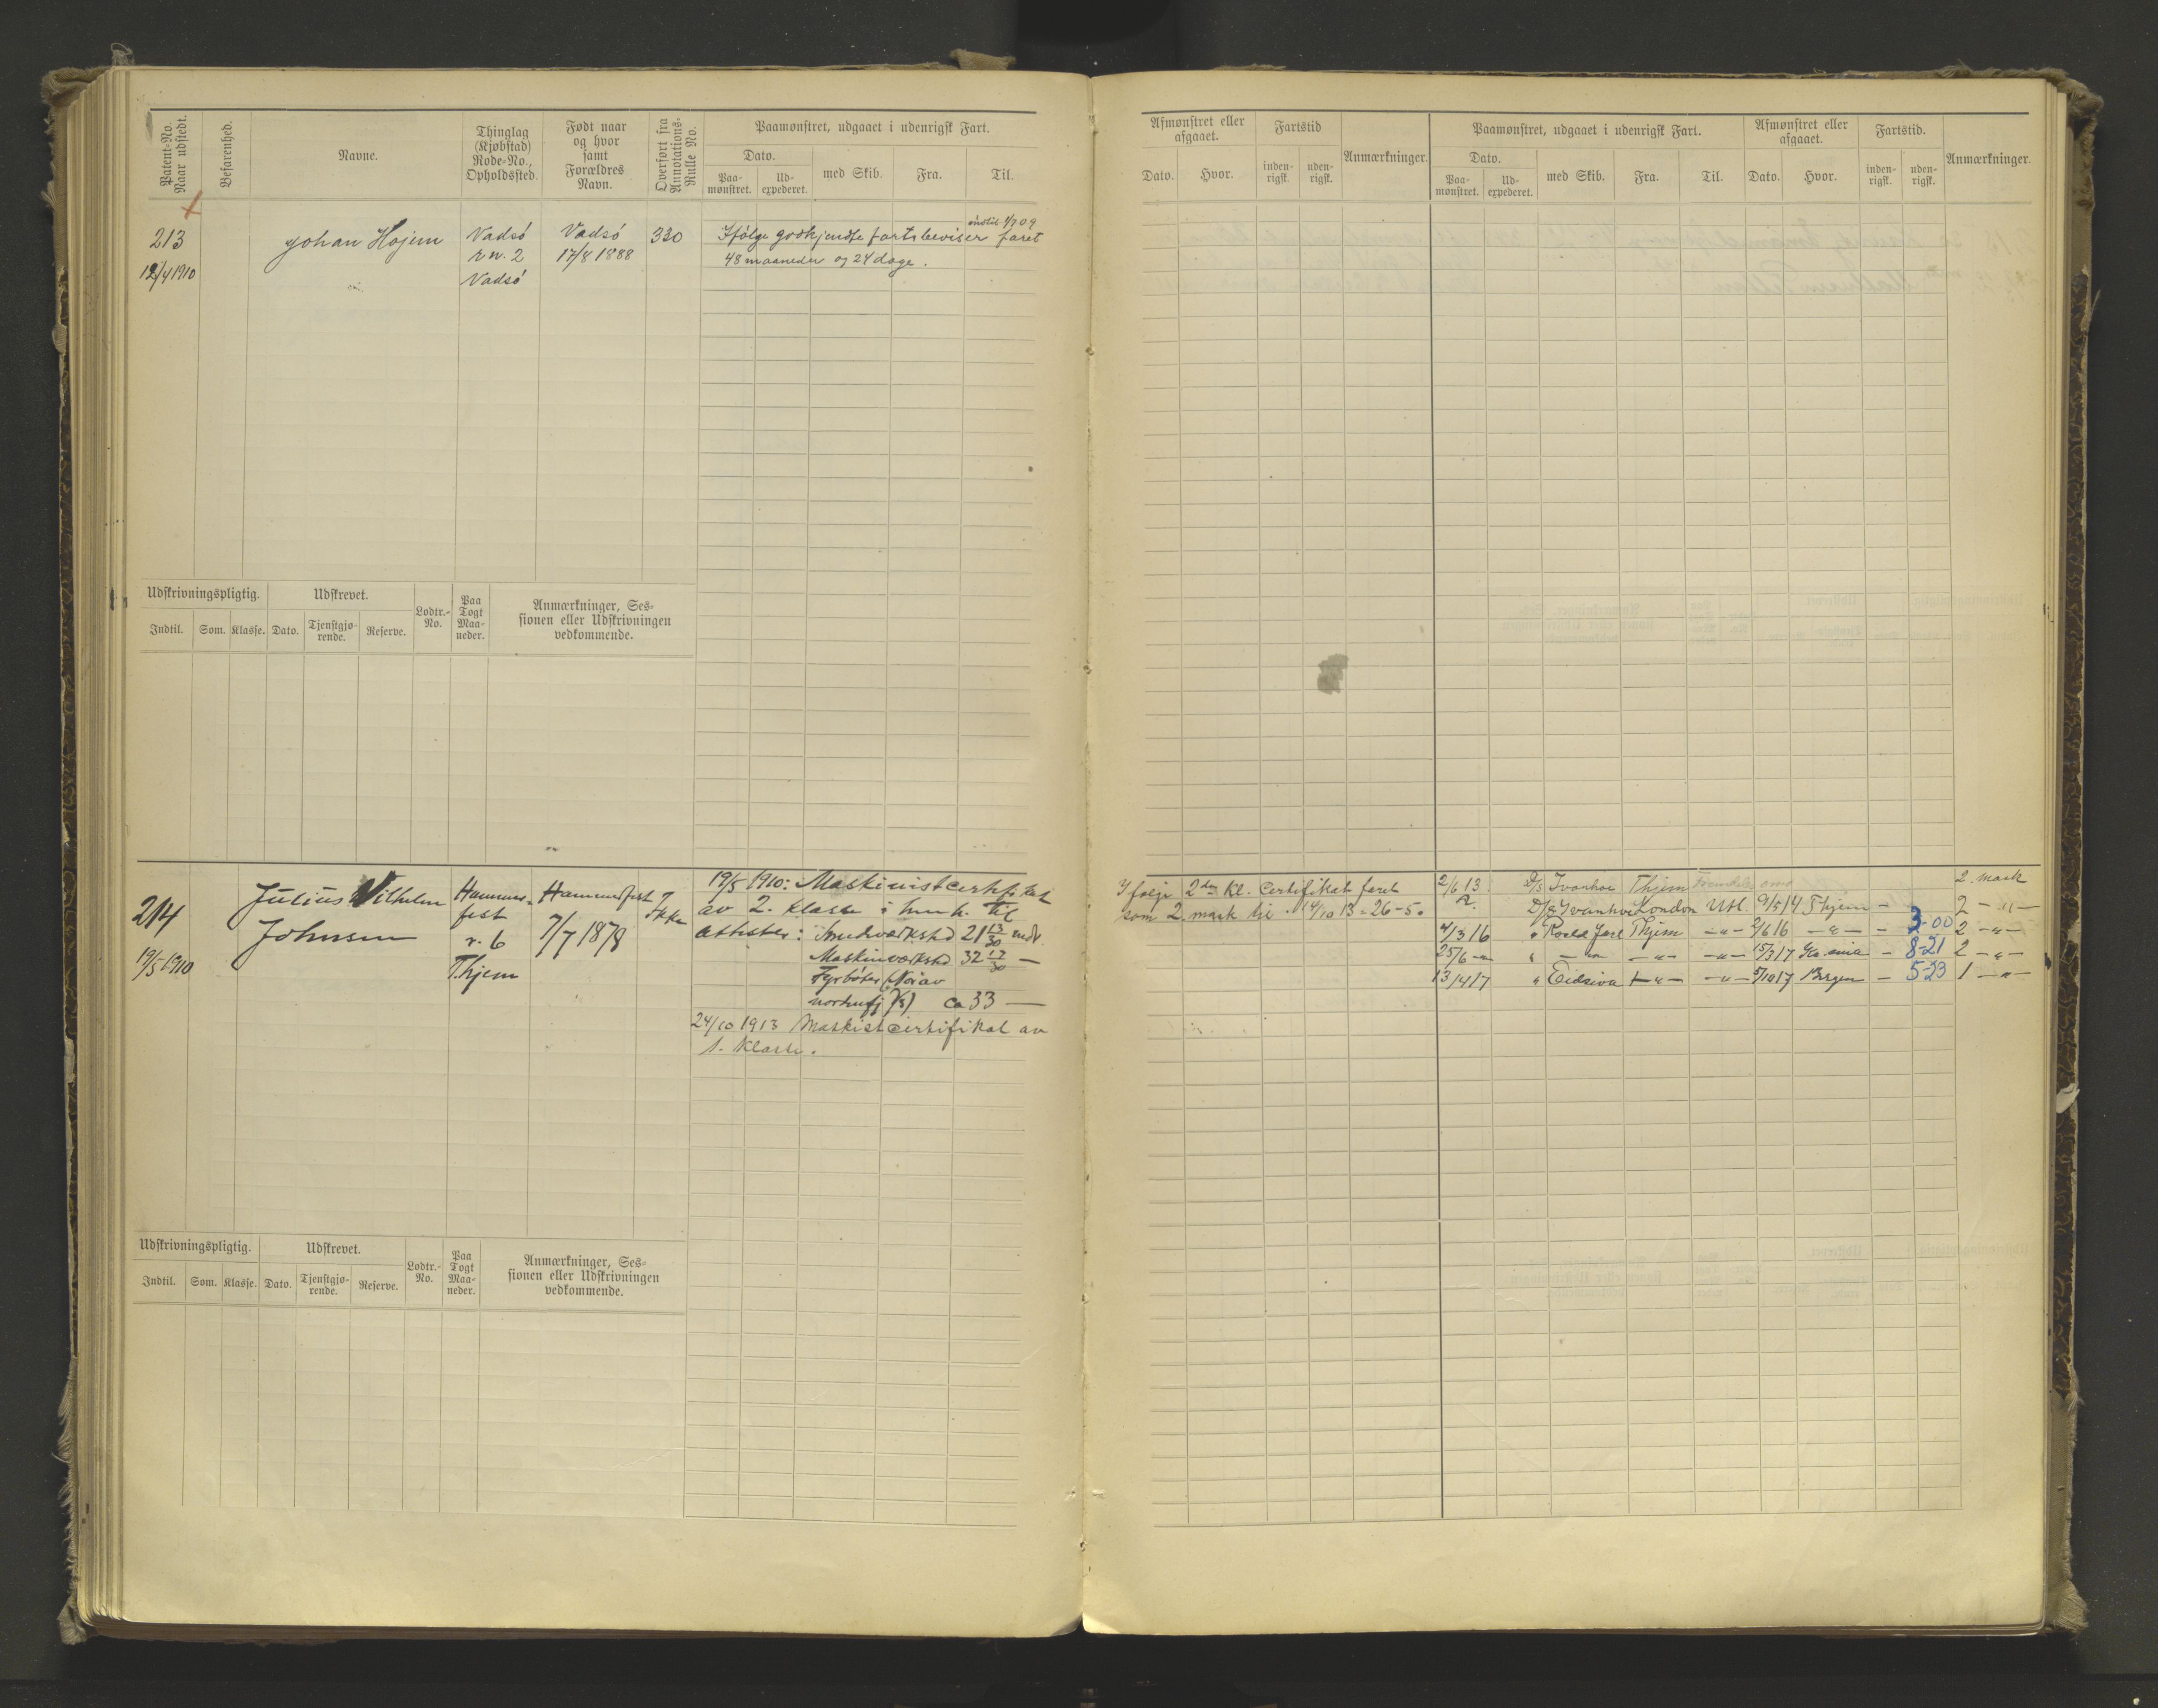 Patent-No.
Naar udstedt.
Befarenhed.
Navne.
Thinglag
(Kjøbstad)
Rode-No.,
Opholdssted.
Født naar
og hvor
samt
Forældres
Navn.
Overført fra
Annotations-
Rulle No.
Paamønstret, udgaaet i udenrigsk Fart.
Dato.
Paa-
mønstret.
Ud-
expederet.
med Skib.
Fra.
Til.
213
12/4 1910
Johan Hojem
Vadsö
r n. 2
Vadsö
Vadsö
17/8 1888
330
indtil 1/7 09
Ifölge godkjendte fartsbeviser faret
48 maaneder og 24 dage.
Udskrivningspligtig.
Udskrevet.
Lodtr.-
No.
Paa
Togt
Maa-
neder.
Anmærkninger, Ses-
sionen eller Udskrivningen
vedkommende.
Indtil.
Som.
Klasse.
Dato.
Tjenstgjø-
rende.
Reserve.
214
19/5 1910
Julius Wilhelm
Johnsen
Hammer-
fest
r. 6
Thjem
Hammerfest
7/7 1878
Ikke
19/5 1910: Maskinistcertifikat
av 2. klasse i henh. til
attester: Smedværksted 21 13/30 mdr.
Maskinværksted 32 17/30 —
Fyrböter
ca 33 —
24/10 1913 Maskistcertifikat av
1. Klasse.
Udskrivningspligtig.
Udskrevet.
Lodtr.-
No.
Paa
Togt
Maa-
neder.
Anmærkninger, Ses-
sionen eller Udskrivningen
vedkommende.
Indtil.
Som.
Klasse.
Dato.
Tjenstgjø-
rende.
Reserve.
Afmønstret eller
afgaaet.
Fartstid
Anmærkninger.
Dato.
Hvor.
inden-
rigsk.
uden-
rigsk.
Paamønstret, udgaaet i udenrigsk Fart.
Dato.
Paa-
mønstret.
Ud-
expederet.
med Skib.
Fra.
Til.
Afmønstret eller
afgaaet.
Dato.
Hvor.
Fartstid.
inden-
rigsk.
uden-
rigsk.
Anmærkninger.
Ifølge 2den Kl. Certifikat faret
som 2. mask til 14/10 13 = 26-5.
2/6 13 D/S Ivanhoe Thjem 2. mask
D/S Ivanhoe London Utl. 9/5 14 Thjem — 2 — " —
4/3 16 " Roald Jarl Thjem — " — 2/6 16 — " — — 3-00 2 — " —
25/6 — " " — " — — " — — " — 15/3 17 — 8-21 2 — " —
13/4 17 " Eidsiva — " — — " — 5/10 17 Bergen — 5-23 1 — " —